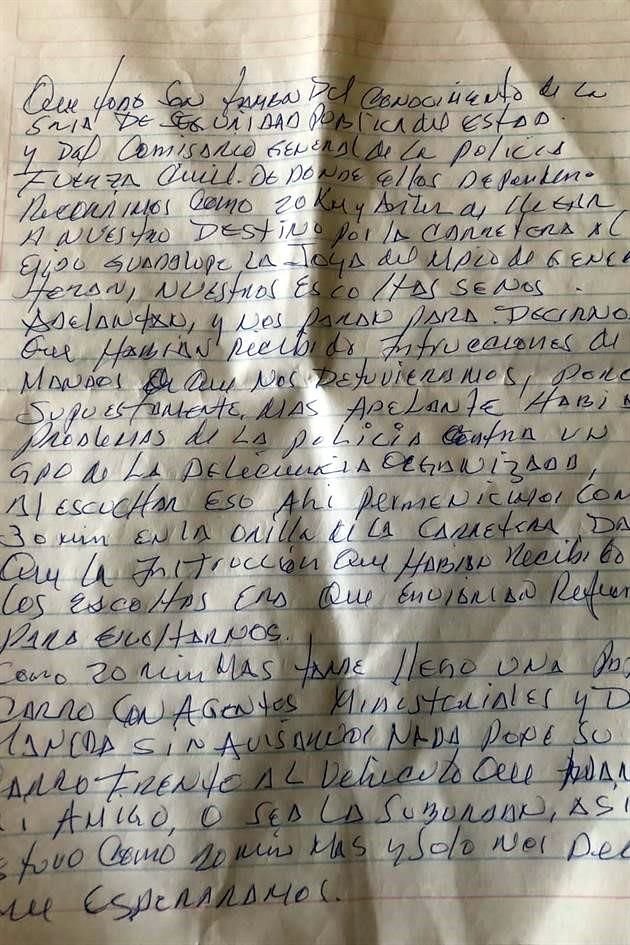 Que todo son tamben Del CONOCIMENTO de la
SRIA DE SEGURIDAD PUBLICA del ESTAD.
y DEL COMISARIO GENERAL de la Policia
FUERZA Civil. DE DONDE Ellos DEPENDEN.
RECORRIMOS COMO 20 Km y Antes de llegar
A NUESTRO DESTINO Por la CARRETERA AL
Ejido GUADALUPE LA JOYA del MPIO de GENER
TERAN, NUESTROS ESCOLTAS SENOS.
ADELANTAN, y NOS PARAN PARA. DECIRNO
Que HABIAN Recibido Intrucciones de
MANDOS Que NOS DETUVIERAMOS, PORQ
SUPUESTAMENTE, MAS ADELANTE HABIA
Problemas de LA policia Contra UN
GPO de LA DELECUENCIA ORGANIZADA,
Al ESCUCHAR ESO Ahi permenicimos COM
30 min EN LA ORILLA de LA CARRETERA, DA
Que la Instrucción Que HABIAN Recibido
los ESCOLTAS ERA Que ENVIARIAN Refuer
PARA ESCOLTARNOS.
Como 20 min MAS TARDE llego UNA
CARRO CON AGENTES MINISTERIALES y D
MANERA SIN AVISARNOS NADA PONE SU
CARRO FRENTE AL Vehiculo Que
MI AMIGO, O SEA LA SUBURBAN, ASI
ESTUVO Como 20 min MAS y Solo NOS DEC
QUE ESPERARAMOS.